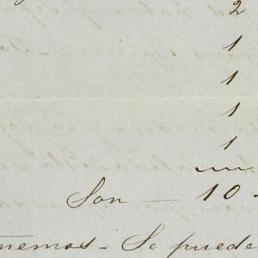 2
1
1
1
1
Son — 10.
nemos - Se puede